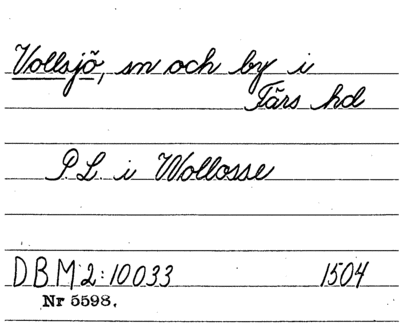 Vollsjö, sn och by i
Färs hd
P.L. i Wollosse
DBM 2:10033 1504
Nr 5598.